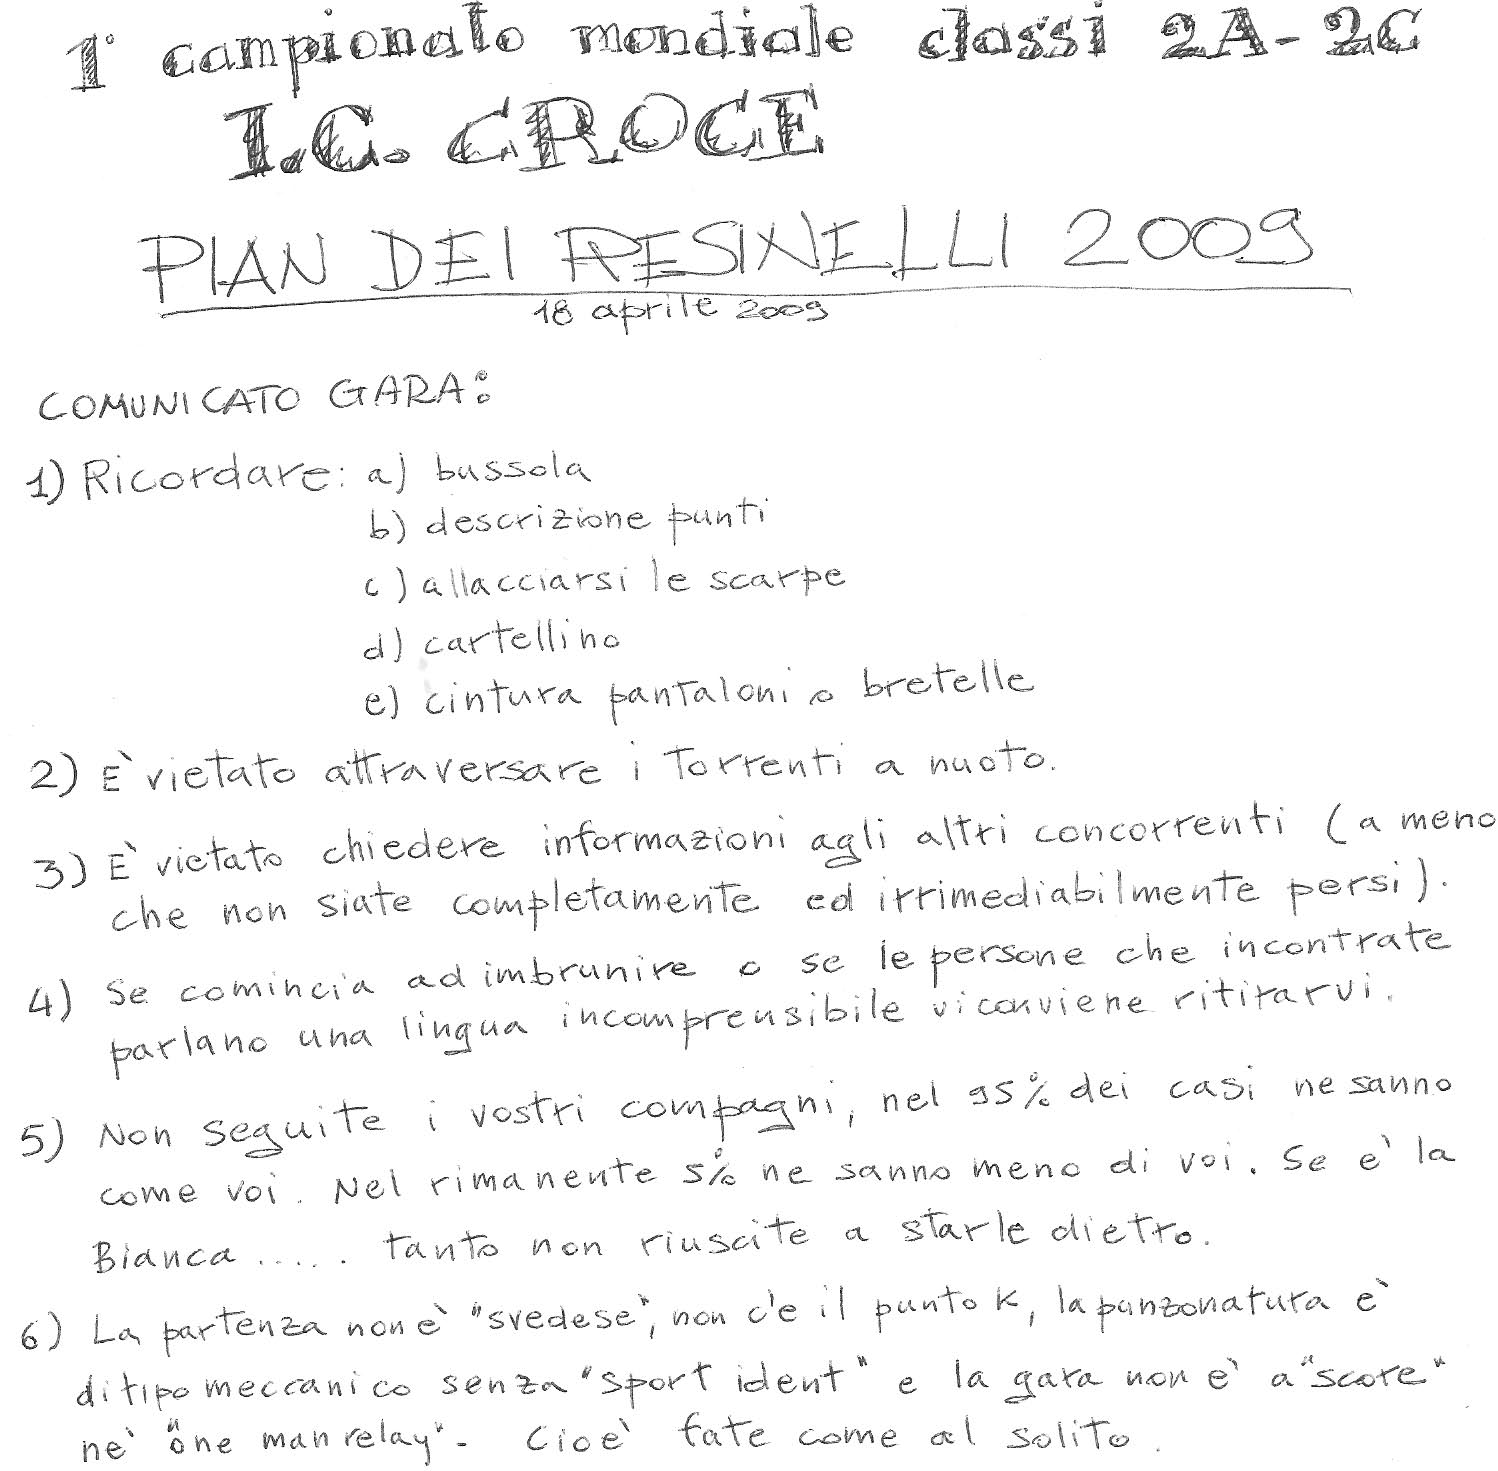 1° campionato mondiale classi 2A-2C
I.C. CROCE
PIAN DEI RESINELLI 2009
18 aprile 2009
COMUNICATO GARA:
1) Ricordare: a) bussola
b) descrizione punti
c) allacciarsi le scarpe
d) cartellino
e) cintura pantaloni o bretelle
2) E' vietato attraversare i torrenti a nuoto.
3) E' vietato chiedere informazioni agli altri concorrenti (a meno
che non siate completamente ed irrimediabilmente persi).
4) Se comincia ad imbrunire o se le persone che incontrate
parlano una lingua incomprensibile vi conviene ritirarvi.
5) Non seguite i vostri compagni, nel 95% dei casi ne sanno
come voi. Nel rimanente 5% ne sanno meno di voi. Se e' la
Bianca ..... tanto non riuscite a starle dietro.
6) La partenza non e' "svedese", non c'e il punto K, la punzonatura e'
di tipo meccanico senza "sport ident" e la gara non e' a "score"
ne' "one man relay". Cioe' fate come al solito.